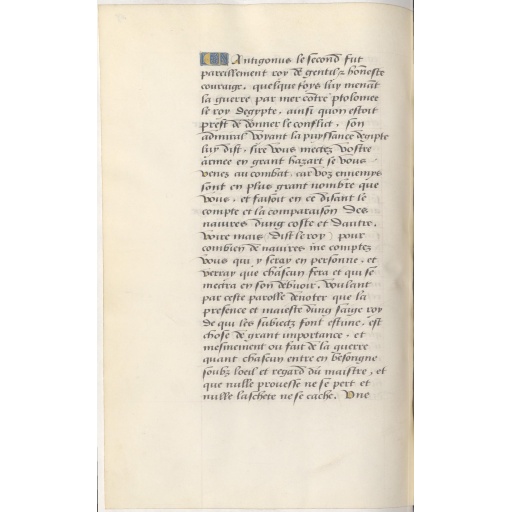 Antigonus le second fut
pareillement roy de gentil z honneste
couraige. quelque foys luy menāt
la guerre par mer cōtre ptolomee
le roy degypte, ainsi quon estoit
prest de donner le conflict, son
admiral voyant la puyssance degipte
luy dist, sire vous mectez vostre
armee en grant hazart se vous
venez au combat, car voz ennemys
sont en plus grant nombre que
vous, et faisoit en ce disant le
compte et la comparaison des
navires dung coste et dautre,
voire mais dist le roy pour
combien de navires me comptez
vous qui y seray en personne, et
verray que chascun fera et qui se
mectra en son debuoir, voulant
par ceste parolle denoter que la
presence et maieste dung saige roy
de qui les subiectz font estime, est
chose de grant importance, et
mesmement ou fait de la guerre
quant chascun entre en besongne
soubz loeil et regard du maistre, et
que nulle prouesse ne se pert et
nulle laschete ne se cache. Une